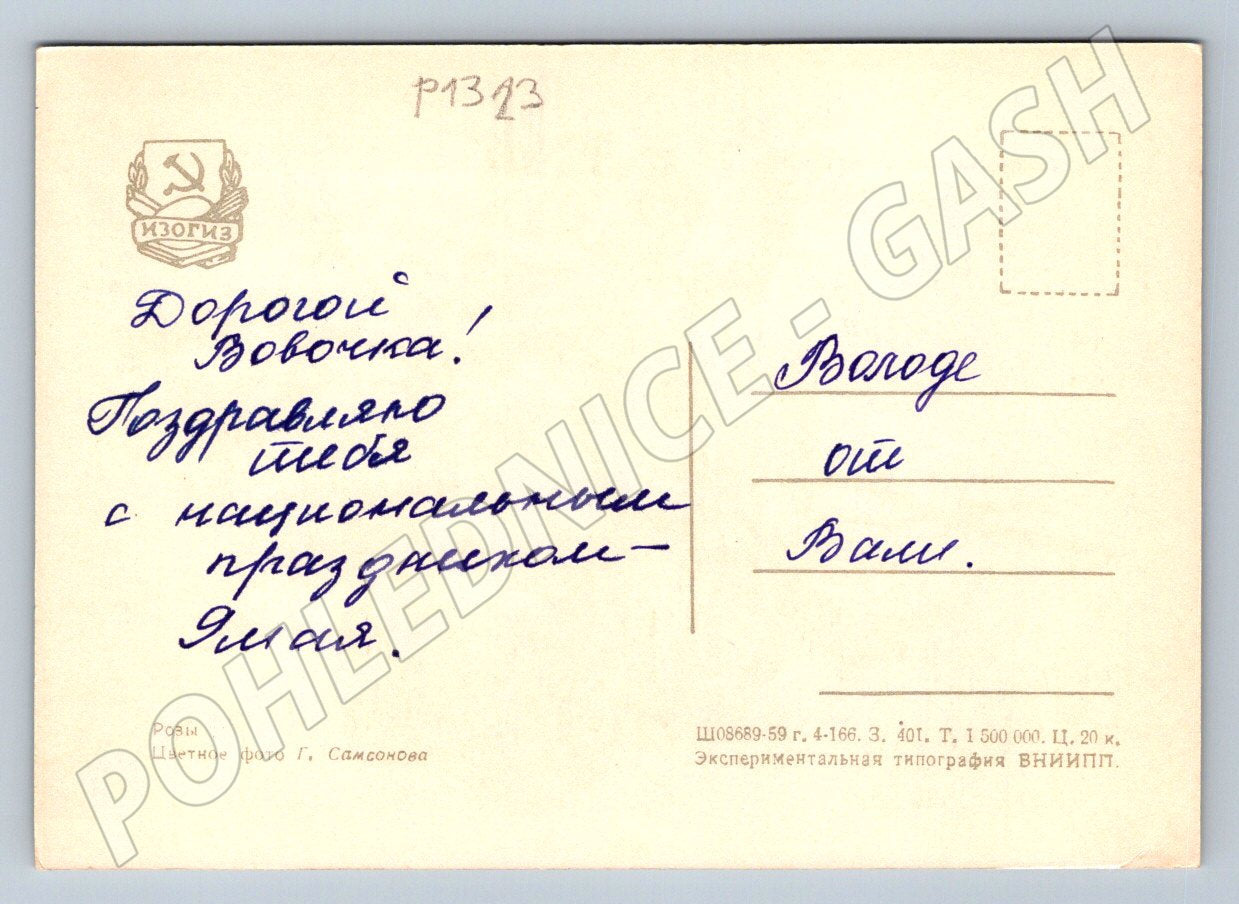 р1323
ИЗОГИЗ
Дорогой
Вовочка!
Поздравляю
тебя
с национальным
праздником —
9 мая.
Володе
от
Вали.
Розы
Цветное фото Г. Самсонова
Ш08689-59 г. 4-166. З. 401. Т. 1 500 000. Ц. 20 к.
Экспериментальная типография ВНИИПП.
POHLEDNICE - GASH